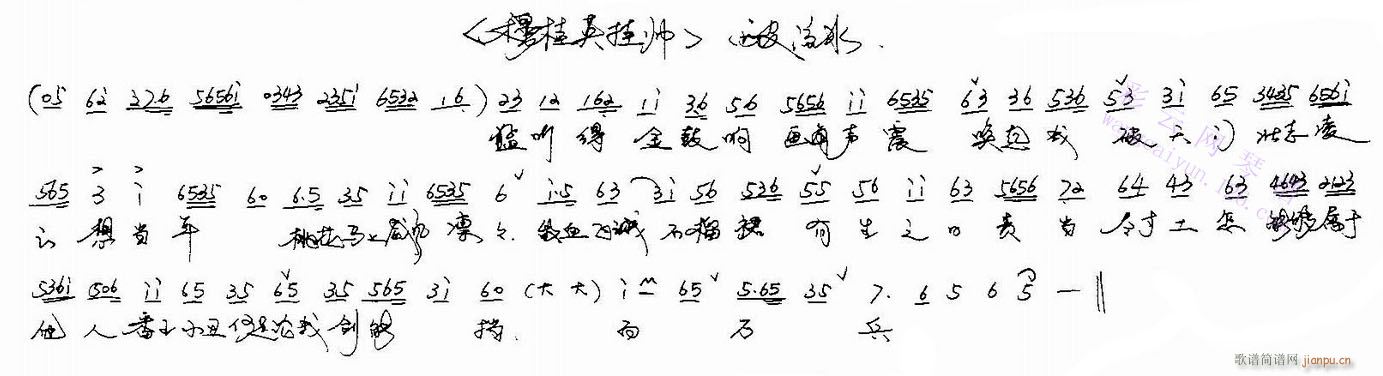 《穆桂英挂帅》 西皮流水
(05 6i 27.6 5656i 0343 235i 6532 16) 23 12 162 ii 36 56 5656 ii 6535 63 36 536 53 3i 65 3435 656i
猛听得金鼓响画角声震 唤起我破天门壮志凌
565 3 i 6535 60 6.5 35 ii 6535 6 i.5 63 3i 56 536 55 56 ii 63 5656 72 64 43 63 4643 2123
云 想当年 桃花马上威风凛々 敌血飞溅石榴裙 有生之日责当 寸土怎 属于
536i 506 ii 65 35 65 35 565 3i 60 (大大) i 65 5.65 35 7. 6 5 6 5 — ‖
他人番王小丑 我剑能挡 百万兵
彩云网琴
歌谱简谱网 jianpu.cn